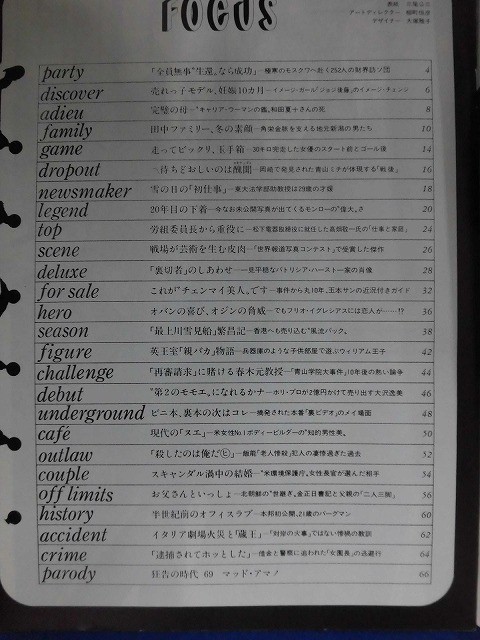 FOCUS
アートディレクター
デザイナー
party 「全員無事“生還”なら成功」—極寒のモスクワへ赴く252人の財界訪ソ団 4
discover 売れっ子モデル、妊娠10カ月—イメージ・ガール「ジョン後藤」のイメージ・チェンジ 6
adieu 完璧の母—“キャリア・ウーマンの鑑”和田夏十さんの死 8
family 田中ファミリー、冬の素顔—角栄金脈を支える地元新潟の男たち 10
game 走ってビックリ、玉手箱—30キロ完走した女優のスタート前とゴール後 14
dropout 〜待ちどおしいのは醜聞—岡崎で発見された青山ミチが体現する「戦後」 16
newsmaker 雪の日の「初仕事」—東大法学部助教授は29歳の才媛 18
legend 20年目の下着—今なお未公開写真が出てくるモンローの“偉大”さ 20
top 労組委員長から重役に—松下電器取締役に就任した高畑敬一氏の「仕事と家庭」 24
scene 戦場が芸術を生む皮肉—「世界報道写真コンテスト」で受賞した傑作 26
deluxe 「裏切者」のしあわせ—一見平穏なパトリシア・ハースト一家の肖像 28
for sale これが“チェンマイ美人”です—事件から丸10年、玉本サンの近況付きガイド 32
hero オバンの喜び、オジンの脅威—でもフリオ・イグレシアスには恋人が……!? 36
season 「最上川雪見船」繁昌記—香港へも売り込む“風流パック” 38
figure 英王室「親バカ」物語—兵器庫のような子供部屋で遊ぶウィリアム王子 42
challenge 「再審請求」に賭ける春木元教授—「青山学院大事件」10年後の熱い論争 44
debut “第2のモモエ”になれるかナ—ホリ・プロが2億円かけて売り出す大沢逸美 46
underground ビニ本、裏本の次はコレ—摘発された本番「裏ビデオ」のメイ場面 48
café 現代の「ヌエ」—米女性No.1ボディービルダーの“知的男性美” 50
outlaw 「殺したのは俺だ㊙」—犯人の凄惨過ぎた過去 52
couple スキャンダル渦中の結婚—“米環境保護庁”女性長官が選んだ相手 54
off limits お父さんといっしょ—北朝鮮の“世継ぎ”金正日書記と父親の「二人三脚」 56
history 半世紀前のオフィスラブ—本邦初公開、21歳のバーグマン 60
accident イタリア劇場火災と「蔵王」—「対岸の火事」ではない惨禍の教訓 62
crime 「逮捕されてホッとした」—借金と警察に追われた「女園長」の逃避行 64
parody 狂告の時代 69 マッド・アマノ 66